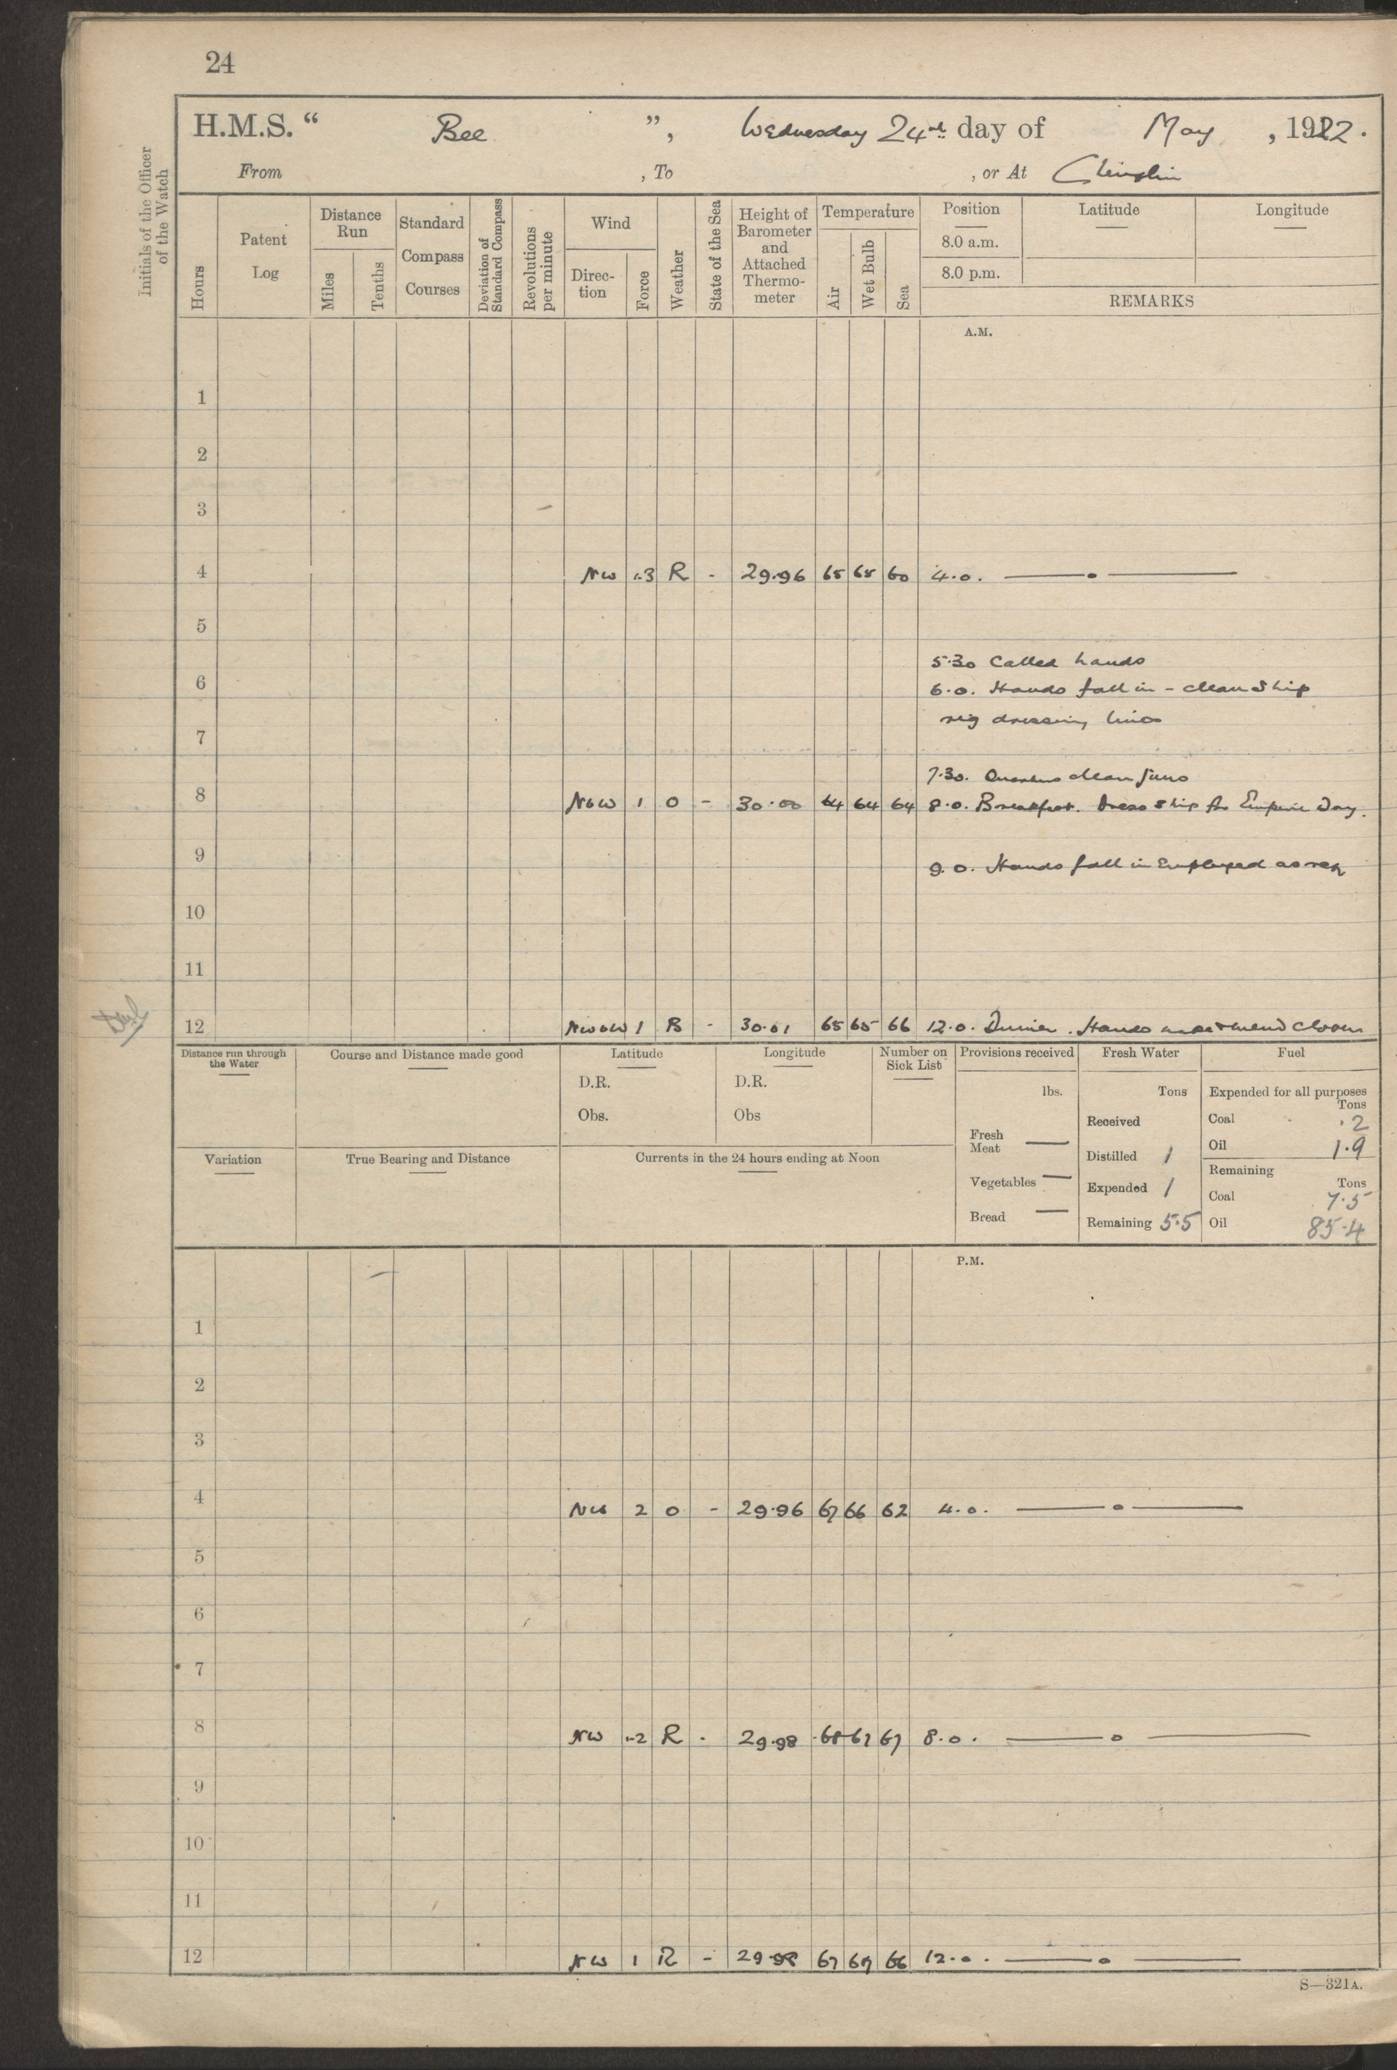 24
H.M.S. “ Bee ”, Wednesday 24th day of May , 1922.
From , To , or At
Initials of the Officer of the Watch
Hours
Patent Log
Distance Run
Miles
Tenths
Standard Compass Courses
Deviation of Standard Compass
Revolutions per minute
Wind
Direction
Force
Weather
State of the Sea
Height of Barometer and Attached Thermometer
Temperature
Air
Wet Bulb
Sea
Position Latitude Longitude
8.0 a.m.
8.0 p.m.
REMARKS
A.M.
1
2
3
4 NW 1.3 R - 29.96 65 65 60 4.0. —o—
5
5.30 Called hands
6
6.0. Hands fall in - clean ship
rig dressing lines
7
7.30. Quarters clean guns
8 NbW 1 O - 30.00 64 64 64 8.0. Breakfast. Dress ship for Empire Day.
9
9.0. Hands fall in Employed as req
10
11
12 1 B - 30.01 65 65 66 12.0. Dinner. Hands make & mend clothes
Distance run through the Water
Course and Distance made good
Latitude
D.R.
Obs.
Longitude
D.R.
Obs
Number on Sick List
Provisions received
lbs.
Fresh Meat —
Vegetables —
Bread —
Fresh Water
Tons
Received
Distilled 1
Expended 1
Remaining 5.5
Fuel
Expended for all purposes
Tons
Coal .2
Oil 1.9
Remaining
Tons
Coal 7.5
Oil 85.4
Variation
True Bearing and Distance
Currents in the 24 hours ending at Noon
P.M.
1
2
3
4 NW 2 O - 29.96 67 66 62 4.0. —o—
5
6
7
8 NW 1.2 R - 29.98 68 67 67 8.0. —o—
9
10
11
12 NW 1 R - 29.98 67 67 66 12.0. —o—
S—321A.